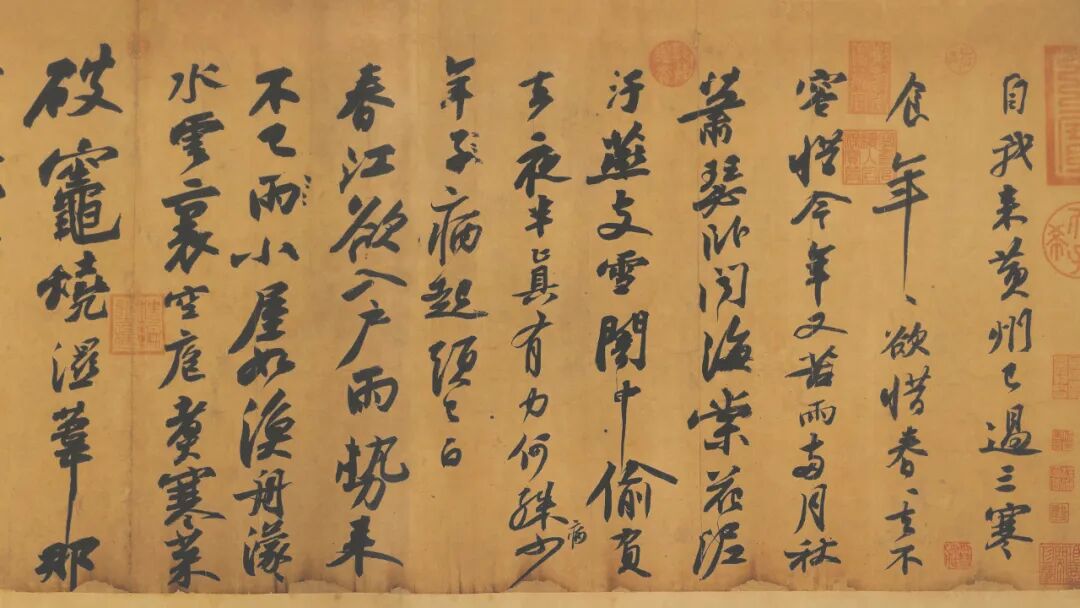 自我来黄州已過三寒
食年、欲惜春、去不
容惜今年又苦雨两月秋
蕭瑟卧聞海棠花泥
汙燕支雪闇中偷負
去夜半真有力何殊少病
年子病起頭已白
春江欲入户雨勢来
不已雨小屋如漁舟濛
水雲裏空庖煮寒菜
破竈燒濕葦那